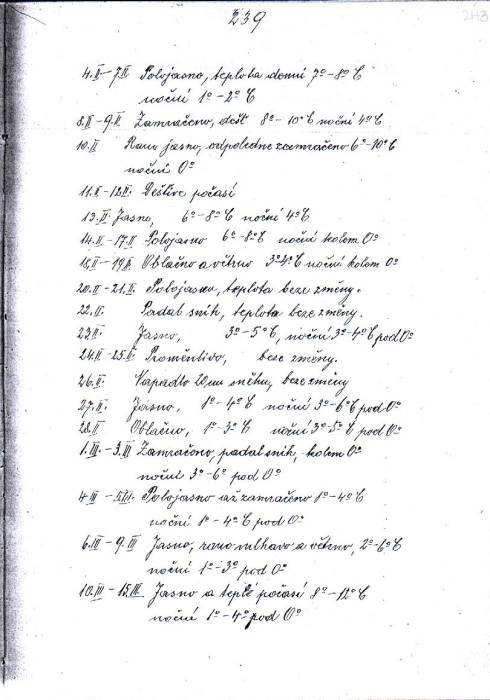 239
243
4.II - 7.II Polojasno, teplota denní 7° - 8° C
noční 1° - 2° C
8.II - 9.II. Zamračeno, dešť 8° - 10° C noční 4° C
10.II Rano jasno, odpoledne zamračeno 6° - 10° C
noční 0°
11.II - 12.II. Deštivé počasí
13.II Jasno, 6° - 8° C noční 4° C
14.II - 17.II Polojasno 6° - 8° C noční kolem 0°
18.II - 19.II Oblačno a větrno 3° 4° C noční kolem 0°
20.II - 21.II. Polojasno, teplota beze změny.
22.II. Padal sníh, teplota beze změny.
23.II Jasno, 3° - 5° C, noční 3° - 4° C pod 0°
24.II - 25.II Proměnlivo, beze změny.
26.II. Napadlo 20cm sněhu, beze změny
27.II. Jasno, 1° - 4° C noční 3° - 6° C pod 0°
28.II Oblačno, 1° - 3° C noční 3° 5° C pod 0°
1.III. - 3.III Zamračeno, padal sníh, kolem 0°
noční 3° - 6° pod 0°
4 III - 5.III. Polojasno až zamračeno 1° - 4° C
noční 1° - 4° C pod 0°
6.III - 9.III Jasno, rano mlhavo a větrno, 2° - 6° C
noční 1° - 3° pod 0°
10.III - 15.III Jasno a teplé počasí 8° - 12° C
noční 1° - 4° pod 0°